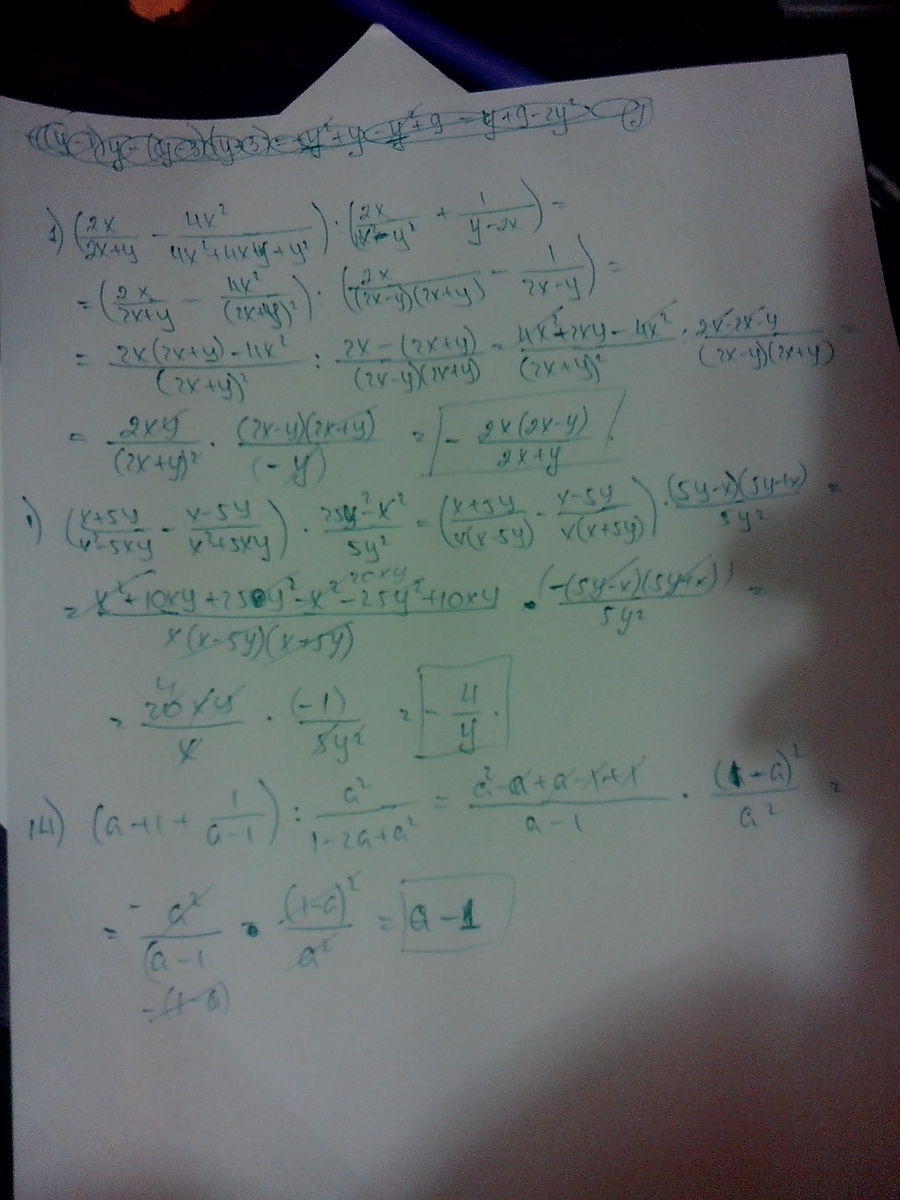 1) (2x/(2x+y) - 4x²/(4x²+4xy+y²)) : (2x/(4x²-y²) + 1/(y-2x)) =
= (2x/(2x+y) - 4x²/(2x+y)²) : (2x/((2x-y)(2x+y)) - 1/(2x-y)) =
= (2x(2x+y)-4x²)/(2x+y)² : (2x-(2x+y))/((2x-y)(2x+y)) = (4x²+2xy-4x²)/(2x+y)² : (2x-2x-y)/((2x-y)(2x+y)) =
= 2xy/(2x+y)² · (2x-y)(2x+y)/(-y) = - 2x(2x-y)/(2x+y).
) ((x+5y)/(x²-5xy) - (x-5y)/(x²+5xy)) · (25y²-x²)/5y² = ((x+5y)/(x(x-5y)) - (x-5y)/(x(x+5y))) · (5y-x)(5y+x)/5y² =
20xy
= (x²+10xy+25y²-x²-25y²+10xy)/(x(x-5y)(x+5y)) · (-(5y-x)(5y+x))/5y² =
= 20xy/x · (-1)/5y² = - 4/y.
14) (a+1+ 1/(a-1)) : a²/(1-2a+a²) = (a²-a+a-1+1)/(a-1) · (1-a)²/a² =
= - a²/(a-1 · (1-a)²/a² = a-1
-(1-a)